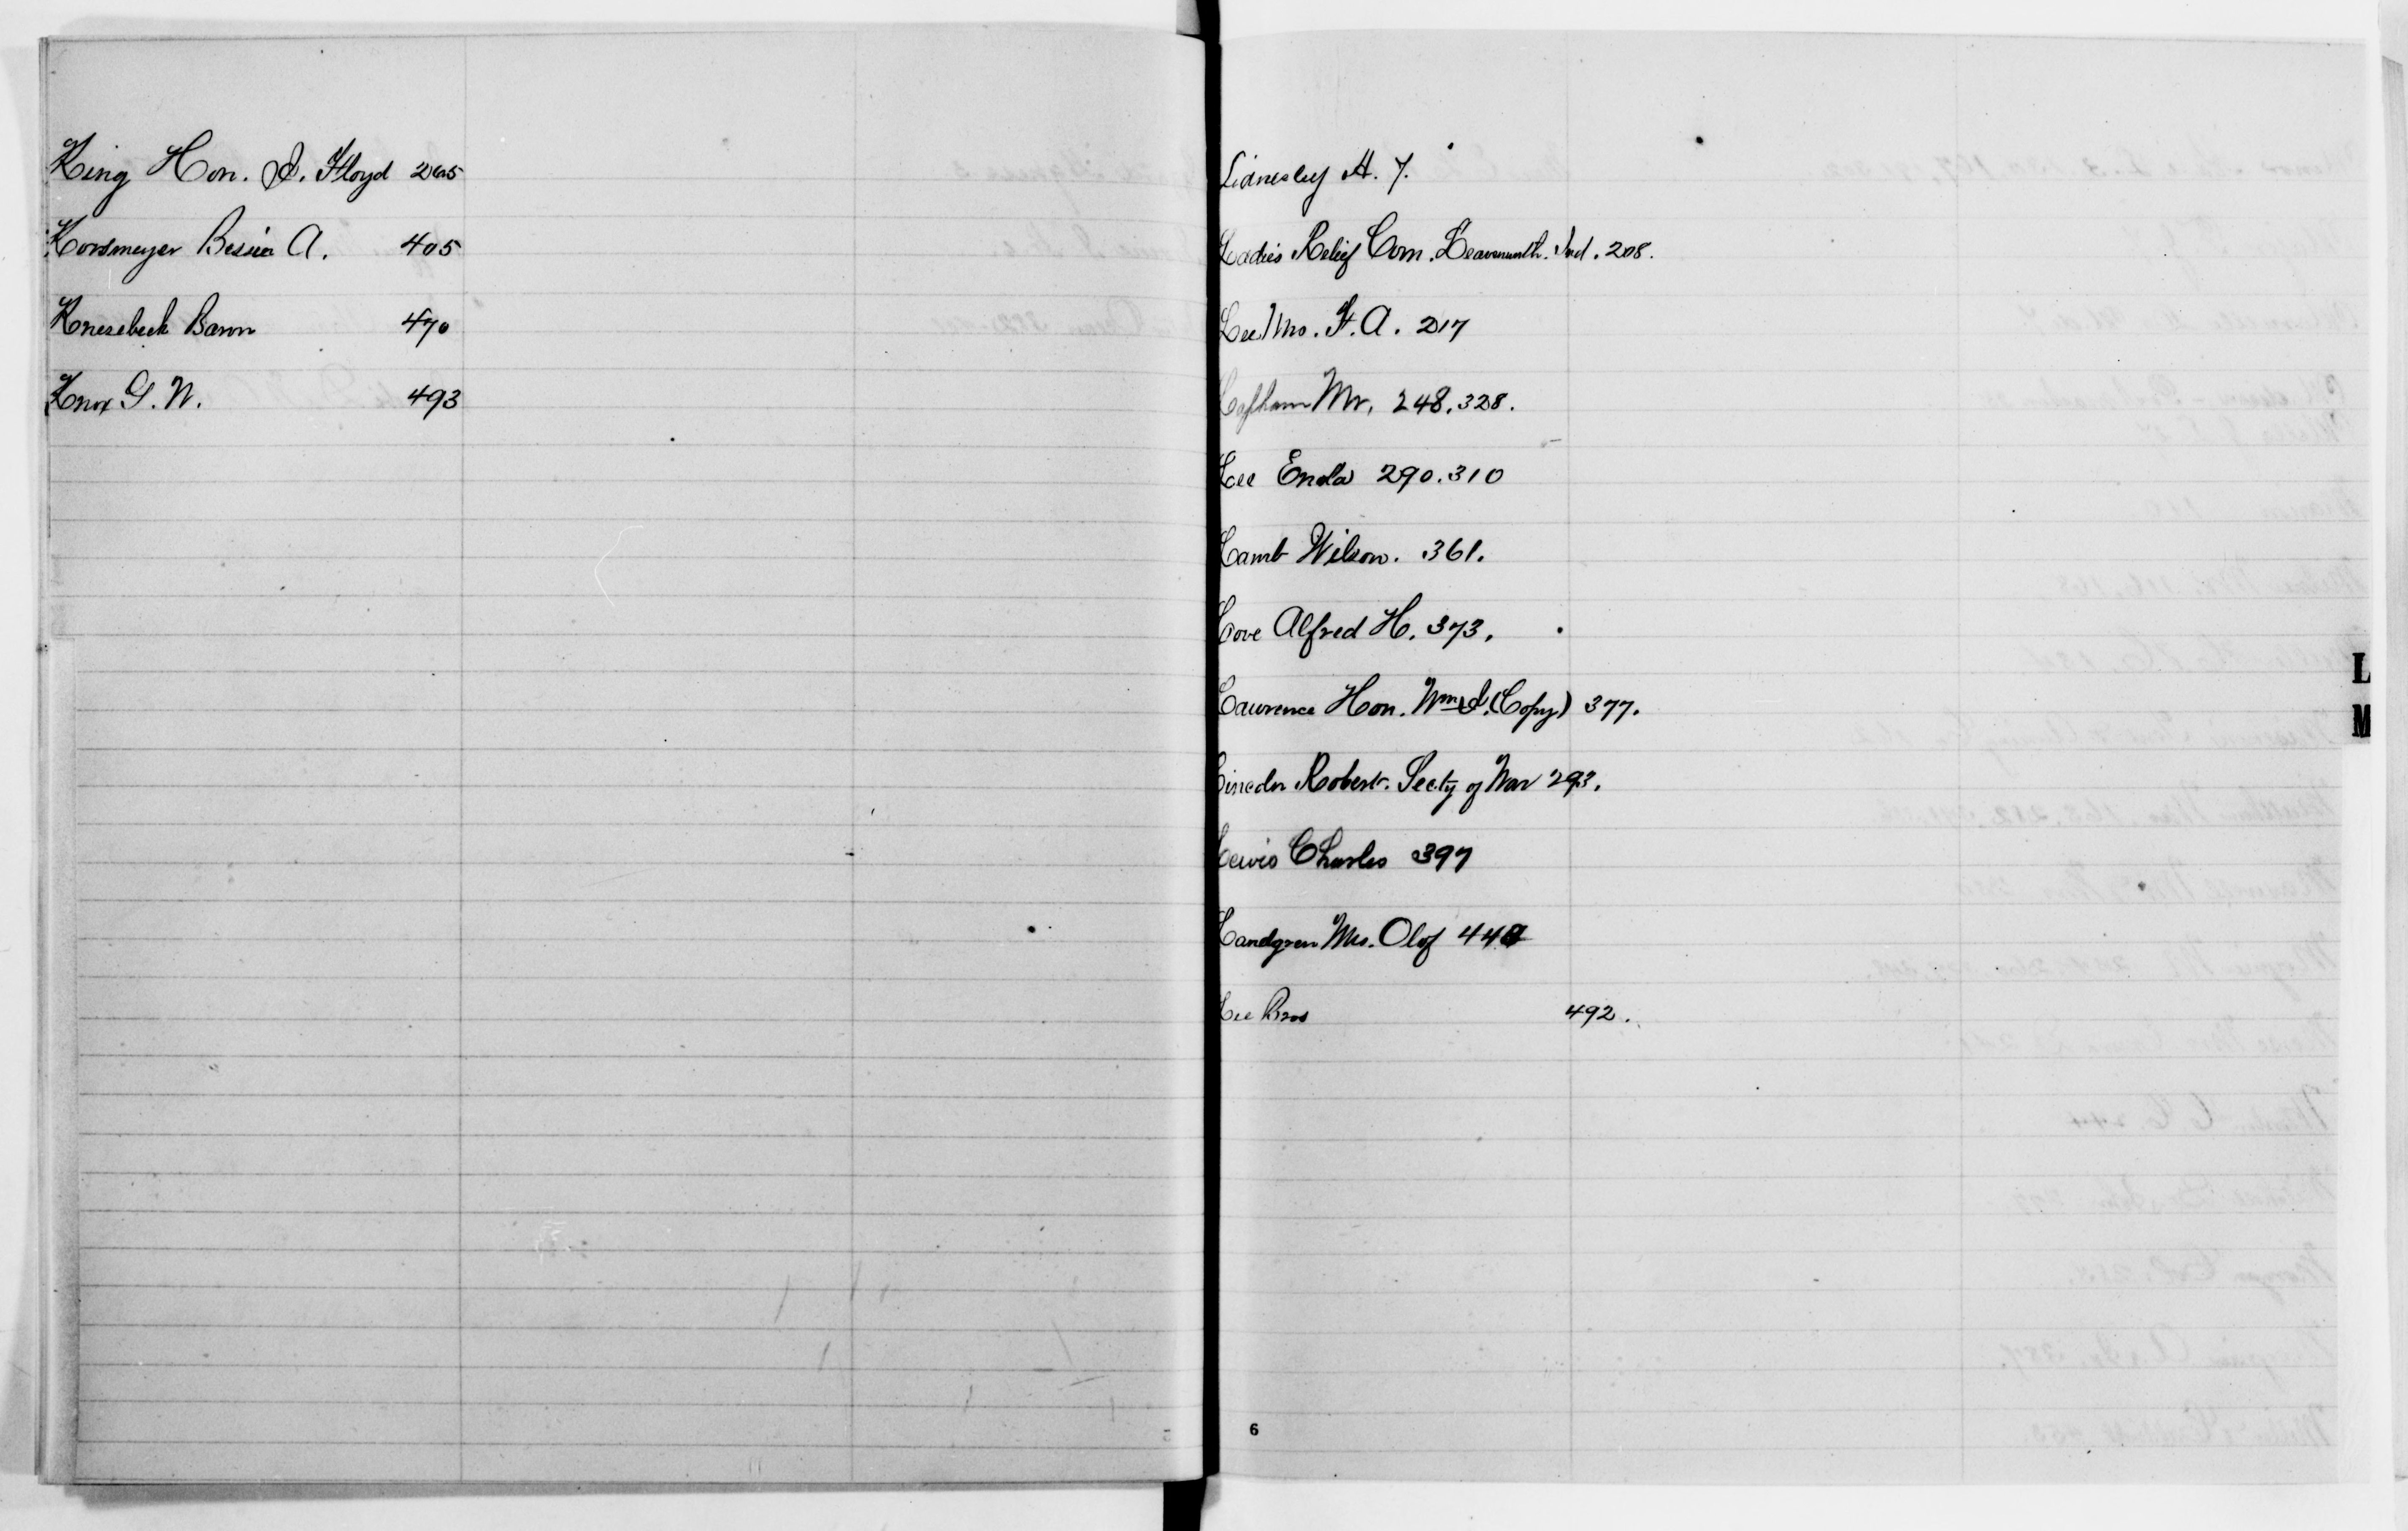 King Hon. J. Floyd 265
Korsmeyer Bessie A. 405
Knesebeck Baron 470
Knox G. W. 493
Lidnesley H. T.
Ladies Relief Com. Leavenworth. Ind. 208.
Lee Mrs. F. A. 217
Lapham Mr, 248. 328.
Lee Enola 290. 310
Lamb Wilson. 361.
Love Alfred H. 373.
Lawrence Hon. Wm (Copy) 377.
Lincoln Robert. Secty of War 293.
Lewis Charles 397
Landgren Mrs. Olof
Lee Bros 492.
L
M
6